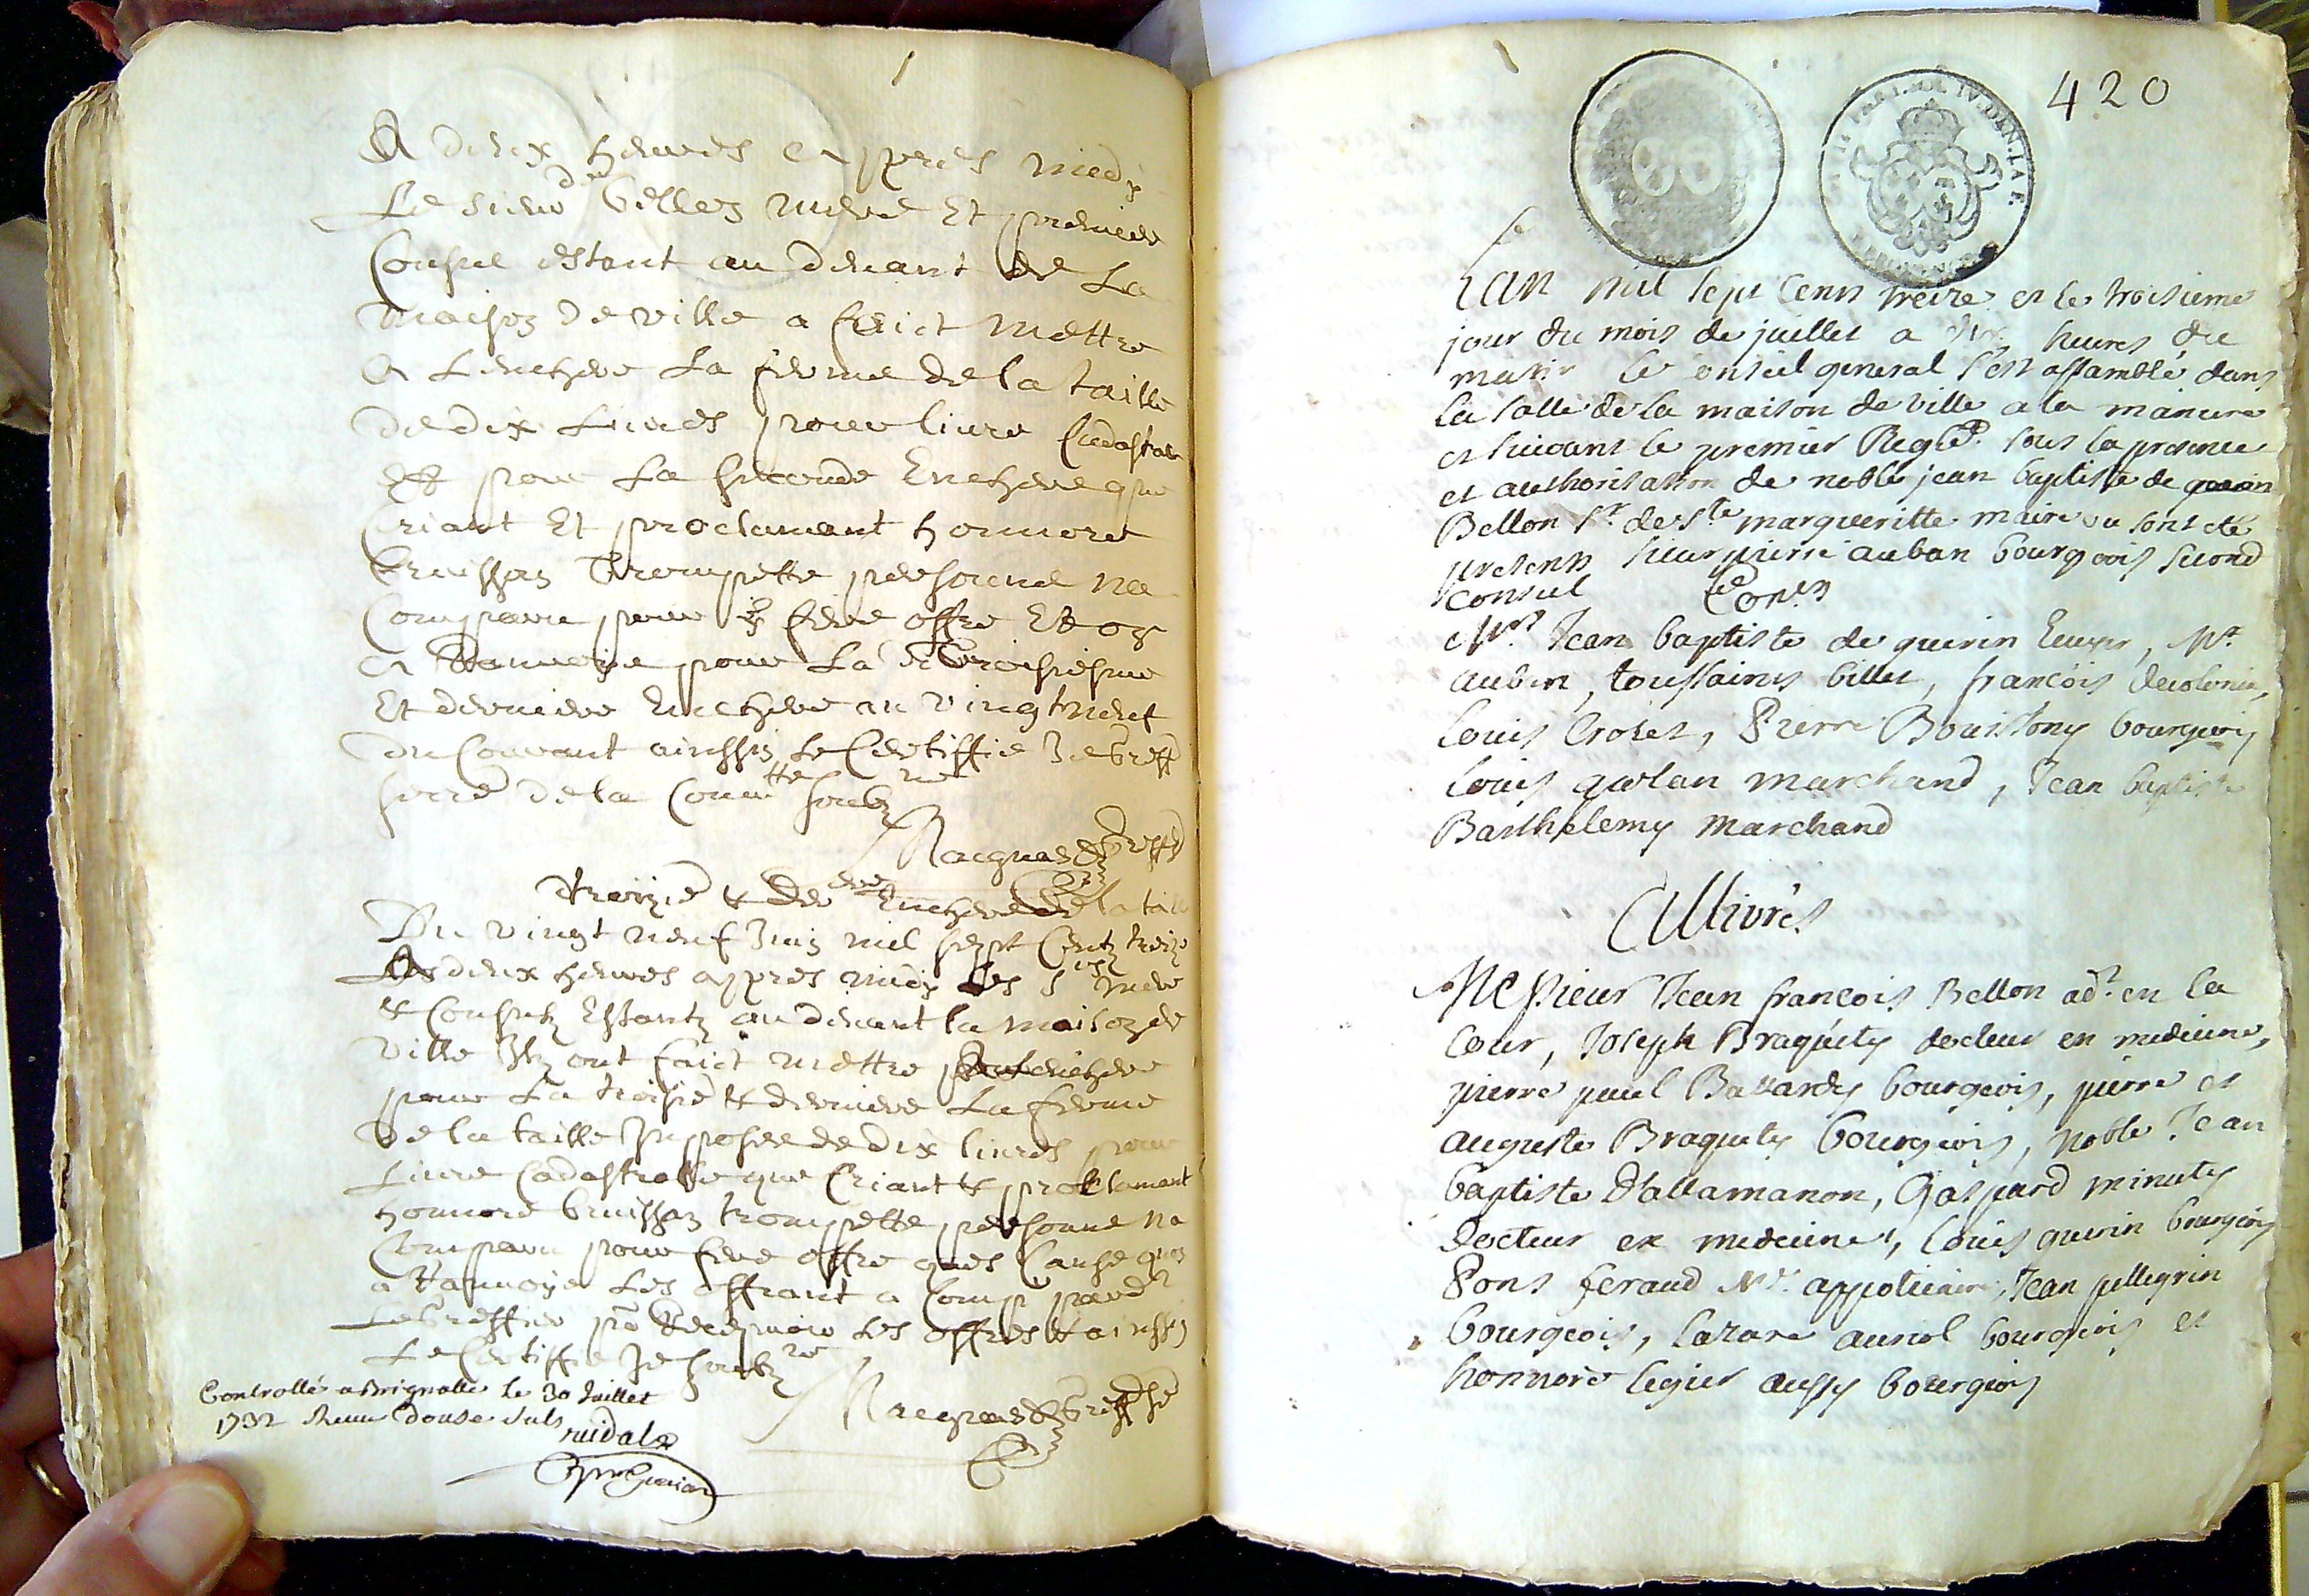 A deux heures appres midy
Le sieur de billez mere Et premier
Consul estant au devant de La
maison de ville a faict mettre
A Lenchere La ferme de la taille
de dix Livres pour livre Cadastralle
Et pour La seconde Enchere que
Criant Et proclamant honnore
bruissan Trompette personne na
Comparu pour y faire offre Et on
a Ranvoyé pour La Troisiesme
Et derniere Enchere au vingt neuf
du Courant ainssin Le Certiffie Je greff
de la Comtte soubz né
greff
Troizie & der ere Enchere de la taille
Du vingt neuf Juin mil sept Centz treize
A deux heures appres midy Les srs mere
& Consulz Estantz au devant la maison de
ville Ilz ont faict mettre
pour La troisie & derniere La ferme
de la taille Inpposee de dix livres pour
Livre Cadastralle que Criant & proclamant
honnore bruissan trompette personne na
Comparu pour faire offre
a Ranvoye Les offrant a Comp
Le Greffier pr Recepvoir Les offres & ainssin
Le Certiffie Je soubz né
greff
Controllé a Brignolle le 30 Juillet
1732 Receu douse sols
420
Lan mil sept cens treize et le troisieme
jour du mois de juillet a dix heures du
matin le conseil general sest assamblé dans
la salle de la maison de ville a la maniere
et suivant le premier Reglet sous la presence
et authorisation de noble jean baptiste de
Bellon sr de ste margueritte maire ou sont eté
presens sieur pierre auban bourgeois second
consul
Cons
Mrs Jean baptiste de guerin Ecuyer, Mr
aubin, toussains billet, francois decolonia,
Louis Croset, Pierre Bouisson bourgeois
Louis marchand, Jean baptiste
Barthelemy marchand
Allivrés
Messieur Jean francois Bellon adt en la
Cour, Joseph Braquety docteur en medicine,
pierre paul Bassardy bourgeois, pierre et
auguste Braquety bourgeois, noble Jean
baptiste d'allamanon, Gaspard minuty
docteur en medicine, Louis guerin bourgeois
Pons feraud Mr appoticaire, Jean pellegrin
bourgeois, Lazare auriol bourgeois et
honnoré legier aussy bourgeois